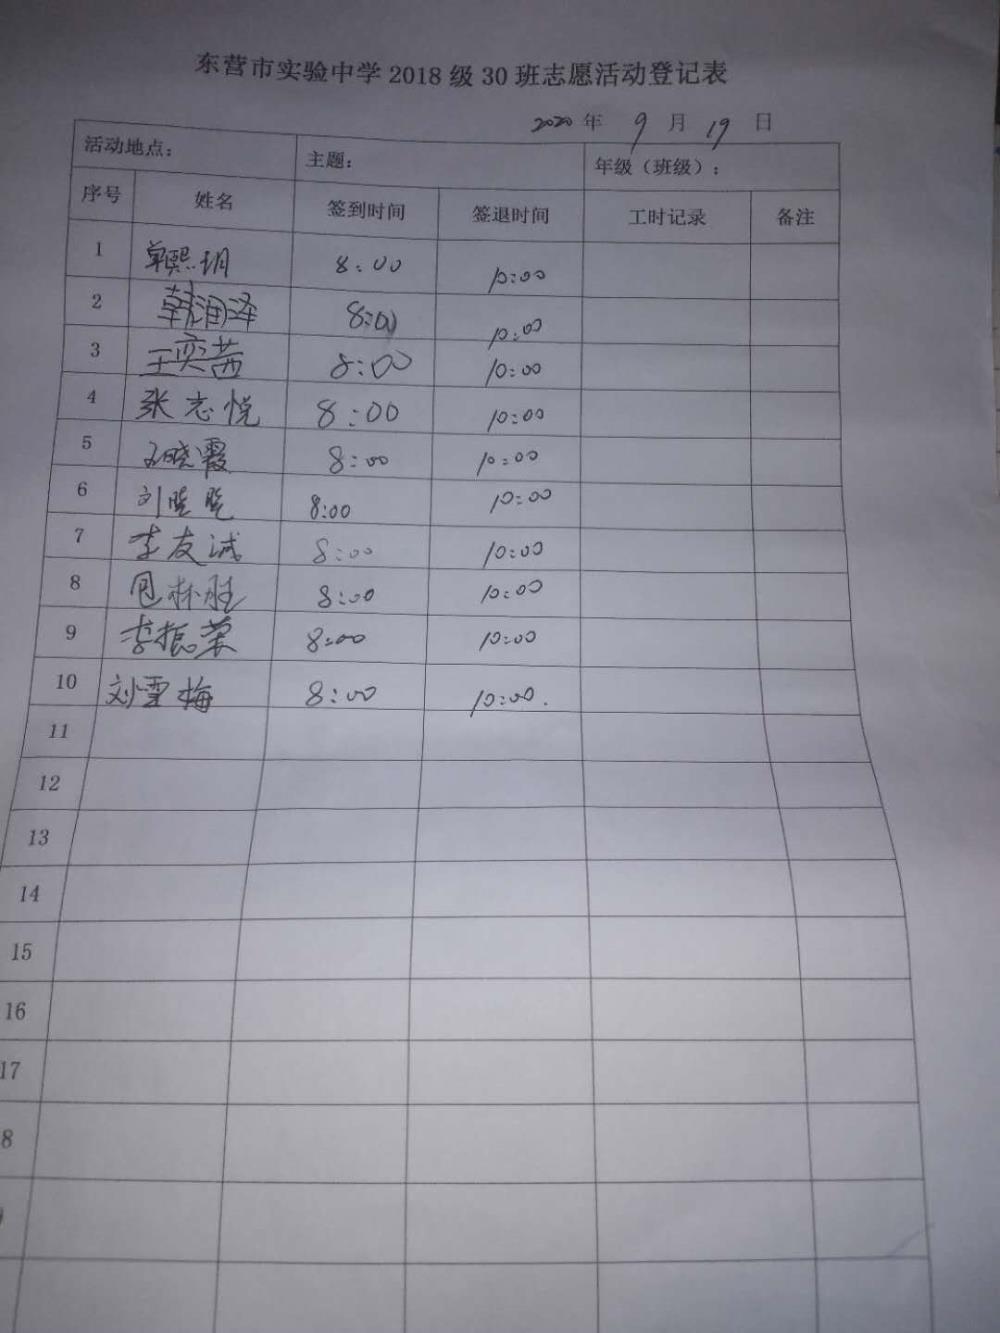 东营市实验中学2018级30班志愿活动登记表
2020年 9月19日
活动地点： 主题： 年级（班级）：
序号 姓名 签到时间 签退时间 工时记录 备注
1 单熙玥 8:00 10:00
2 韩润泽 8:00 10:00
3 王奕茜 8:00 10:00
4 张志悦 8:00 10:00
5 王晓霞 8:00 10:00
6 刘晓晓 8:00 10:00
7 李友诚 8:00 10:00
8 8:00 10:00
9 李振荣 8:00 10:00
10 刘雪梅 8:00 10:00.
11
12
13
14
15
16
17
8